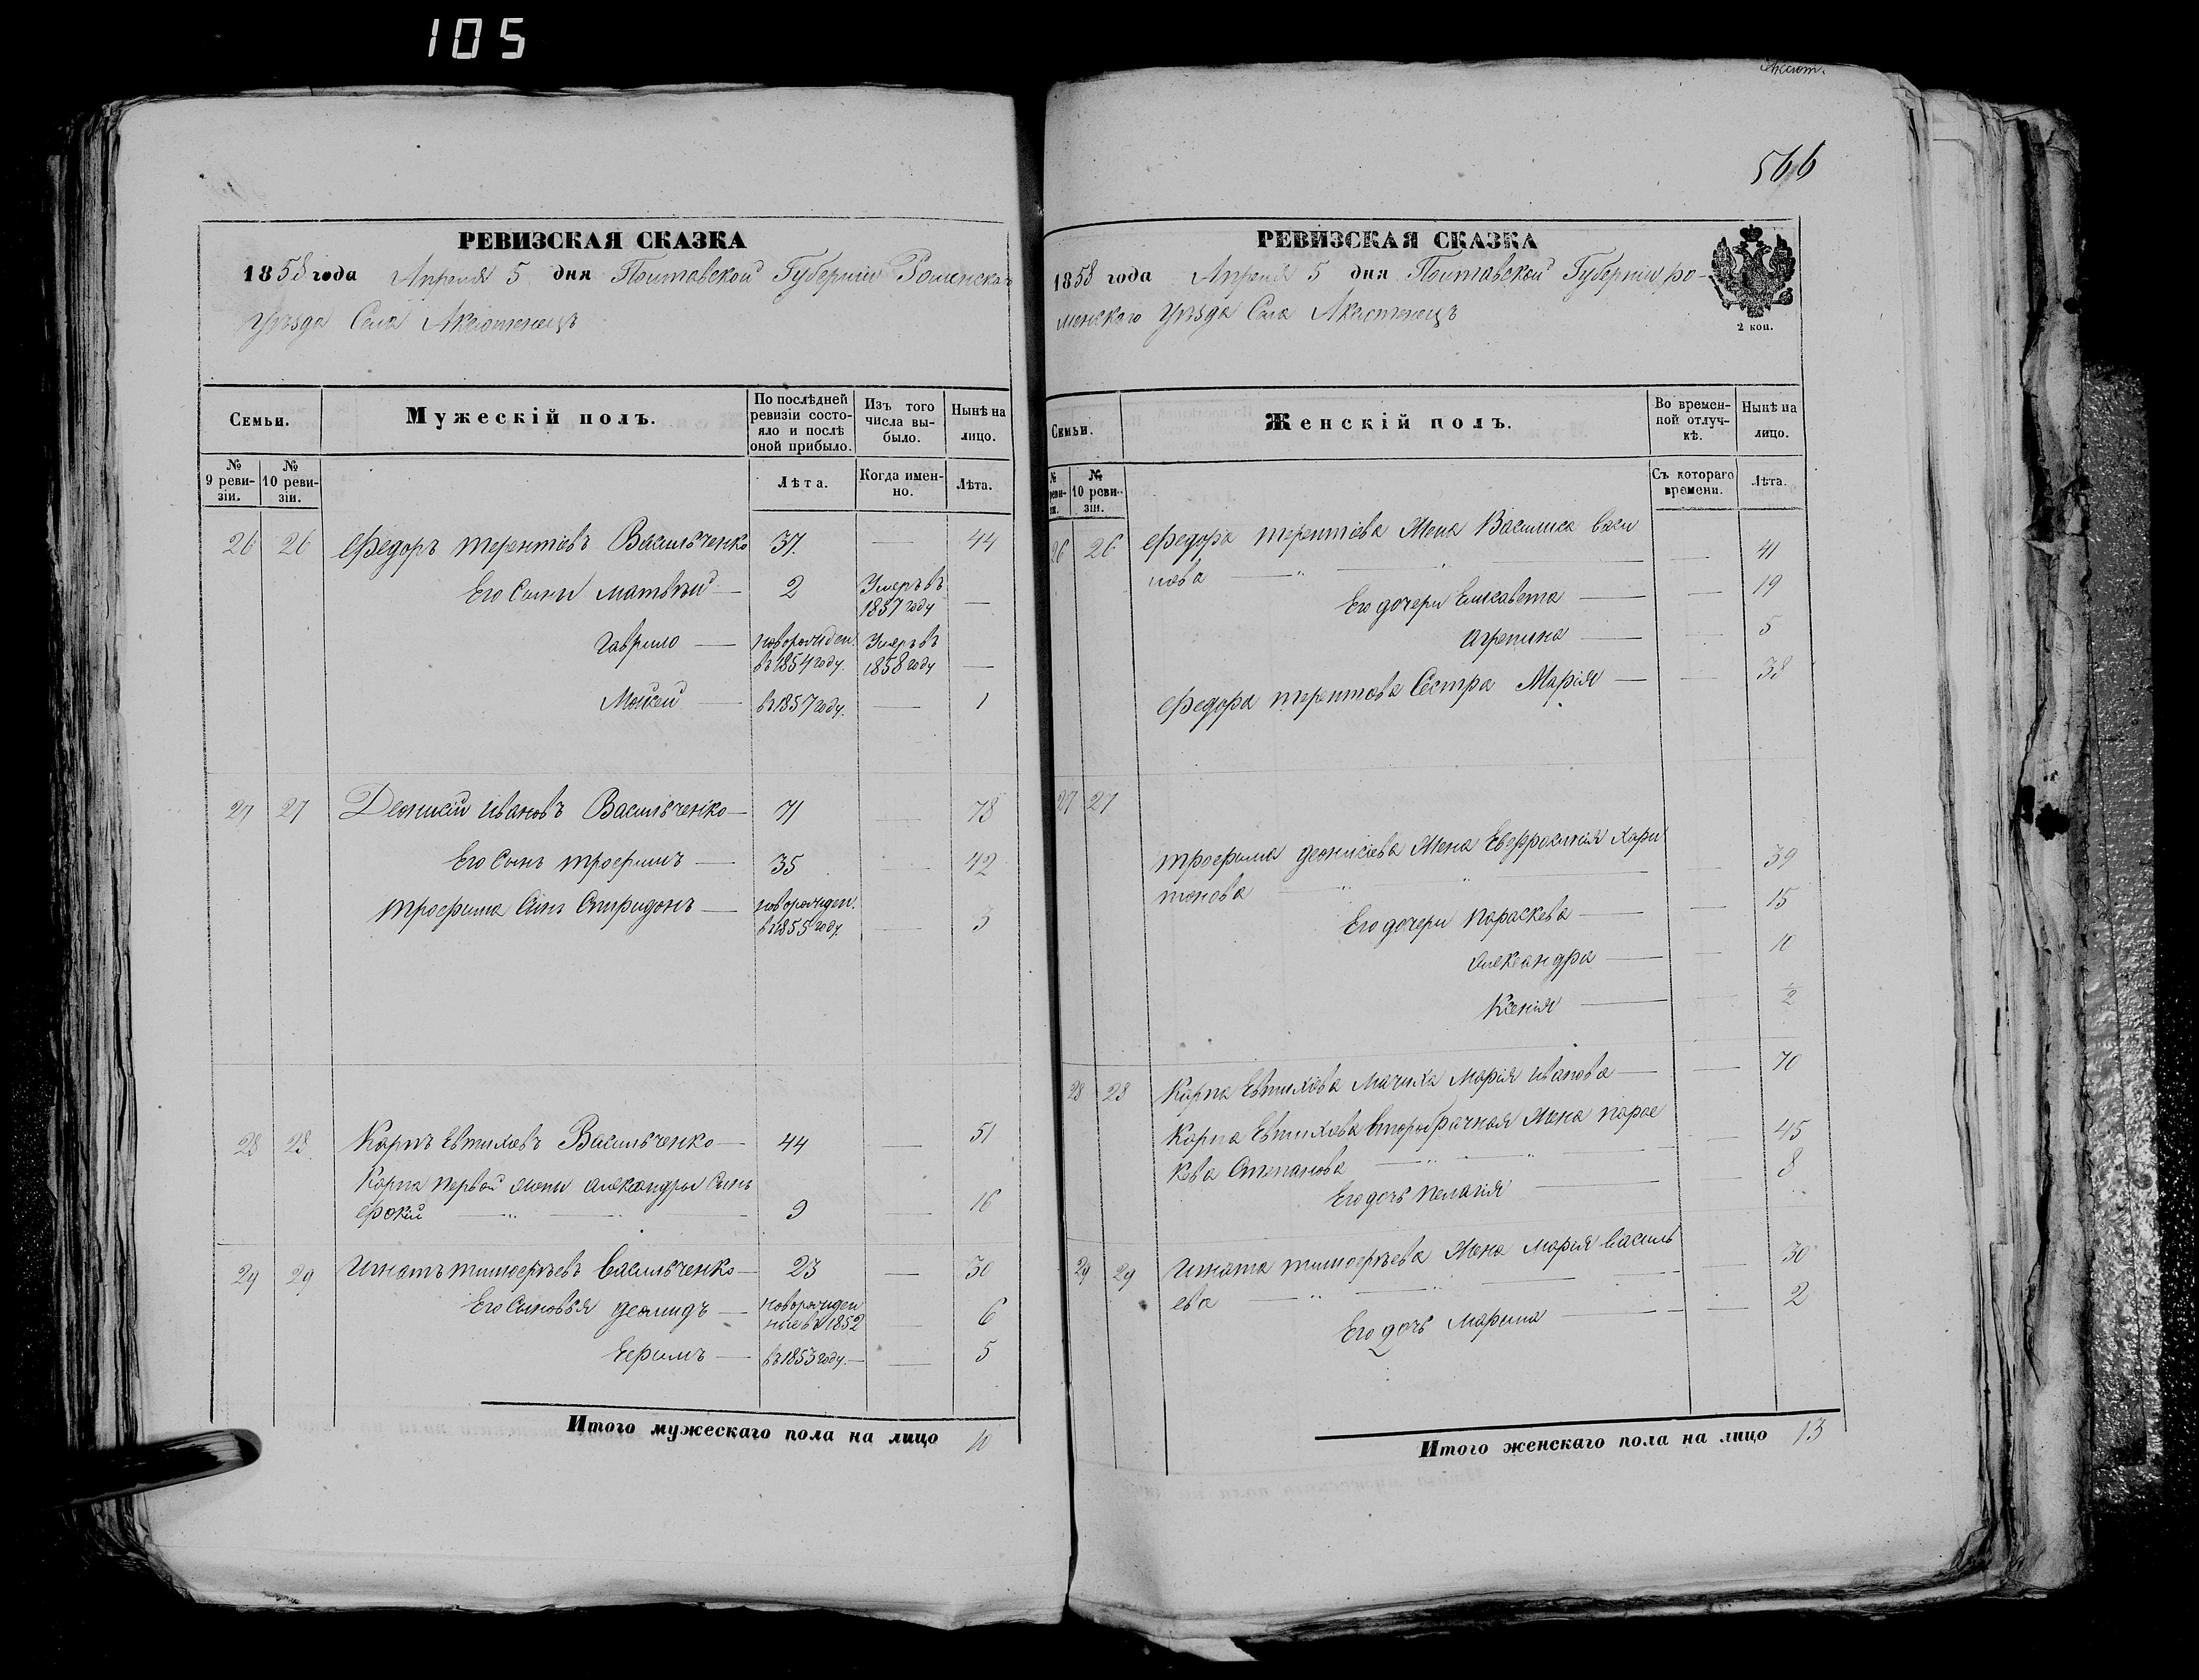 105
РЕВИЗСКАЯ СКАЗКА
1858 года Апреля 5 дня Полтавской Губернии Роменскаго
Уезда Села Аксютенецъ
Семьи.
Мужескій полъ.
По послѣдней ревизіи состо-
яло и послѣ
оной прибыло.
Изъ того
числа вы-
было.
Нынѣ на
лицо.
№
9 реви-
зіи.
№
10 реви-
зіи.
Лѣта.
Когда имен-
но.
Лѣта.
26 26 Федоръ терентіевъ Васильченко 37. — 44
Его Сыны матвѣй — 2 Умеръ въ
1857 году —
гаврило — новорожден.
въ 1854 году. Умеръ въ
1858 году —
Мойсей — въ 1857 году. — 1
27 27 Деонисій ивановъ Васильченко — 71 — 78
Его Сынъ трофимъ — 35 — 42
трофима Сынъ Спиридонъ — новорожден.
въ 1855 году. — 3
28 28 Карпъ Евтихіевъ Васильченко — 44 — 51
Карпа первой жены александры Сынъ
фокій — " — " — 9 — 16
29 29 Игнатъ тимофѣевъ Васильченко — 23 — 30
Его Сыновья демидъ — новорожден
ные въ 1852 — 6
Ефимъ — въ 1853 году. — — 5
Итого мужескаго пола на лицо 10
566
РЕВИЗСКАЯ СКАЗКА
1858 года Апреля 5 дня Полтавской Губернии ро-
менского Уезда Села Аксютенецъ
2 коп.
Семьи.
Женскій полъ.
Во времен-
ной отлуч-
кѣ.
Нынѣ на
лицо.
№
реви-
зіи.
№
10 реви-
зіи.
Съ котораго
времени.
Лѣта.
26 26 Федора терентіева Жена Василиса васи
лова — " — " — — 41
Его дочери Елисавета — — 19
агрепина — — 5
Федора терентіева Сестра Марія — — 38
27 27
трофима деонисіева Жена Евфросинія хари
тонова — " — " — — 39
Его дочери параскева — — 15
александра — — 10
Ксенія — — ½
28 28 Карпа Евтихіева Мачиха Марія иванова — — 70
Карпа Евтихіева второбрачная Жена парас
кева Степанова — " — " — — 45
Его дочь пелагія — — 8
29 29 Игната тимофѣева Жена марія василь
ева — " — " — — 30
Его дочь Марина — — 2
Итого женскаго пола на лицо 13